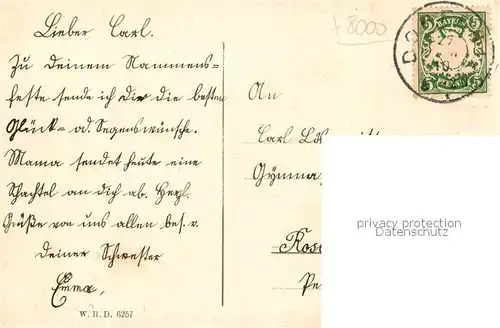 Lieber Carl.
Zu Deinem Nammens-
feste sende ich Dir die besten
Glück- od. Segenswünsche.
Mama sendet heute eine
Schachtel an dich ab. Herzl.
Grüße von uns allen bes. v.
deiner Schwester
Emma,
W. H. D. 6257
+8000
BAYERN
5 5
An
Carl
Gymna
Rose
Pe
privacy protection
Datenschutz